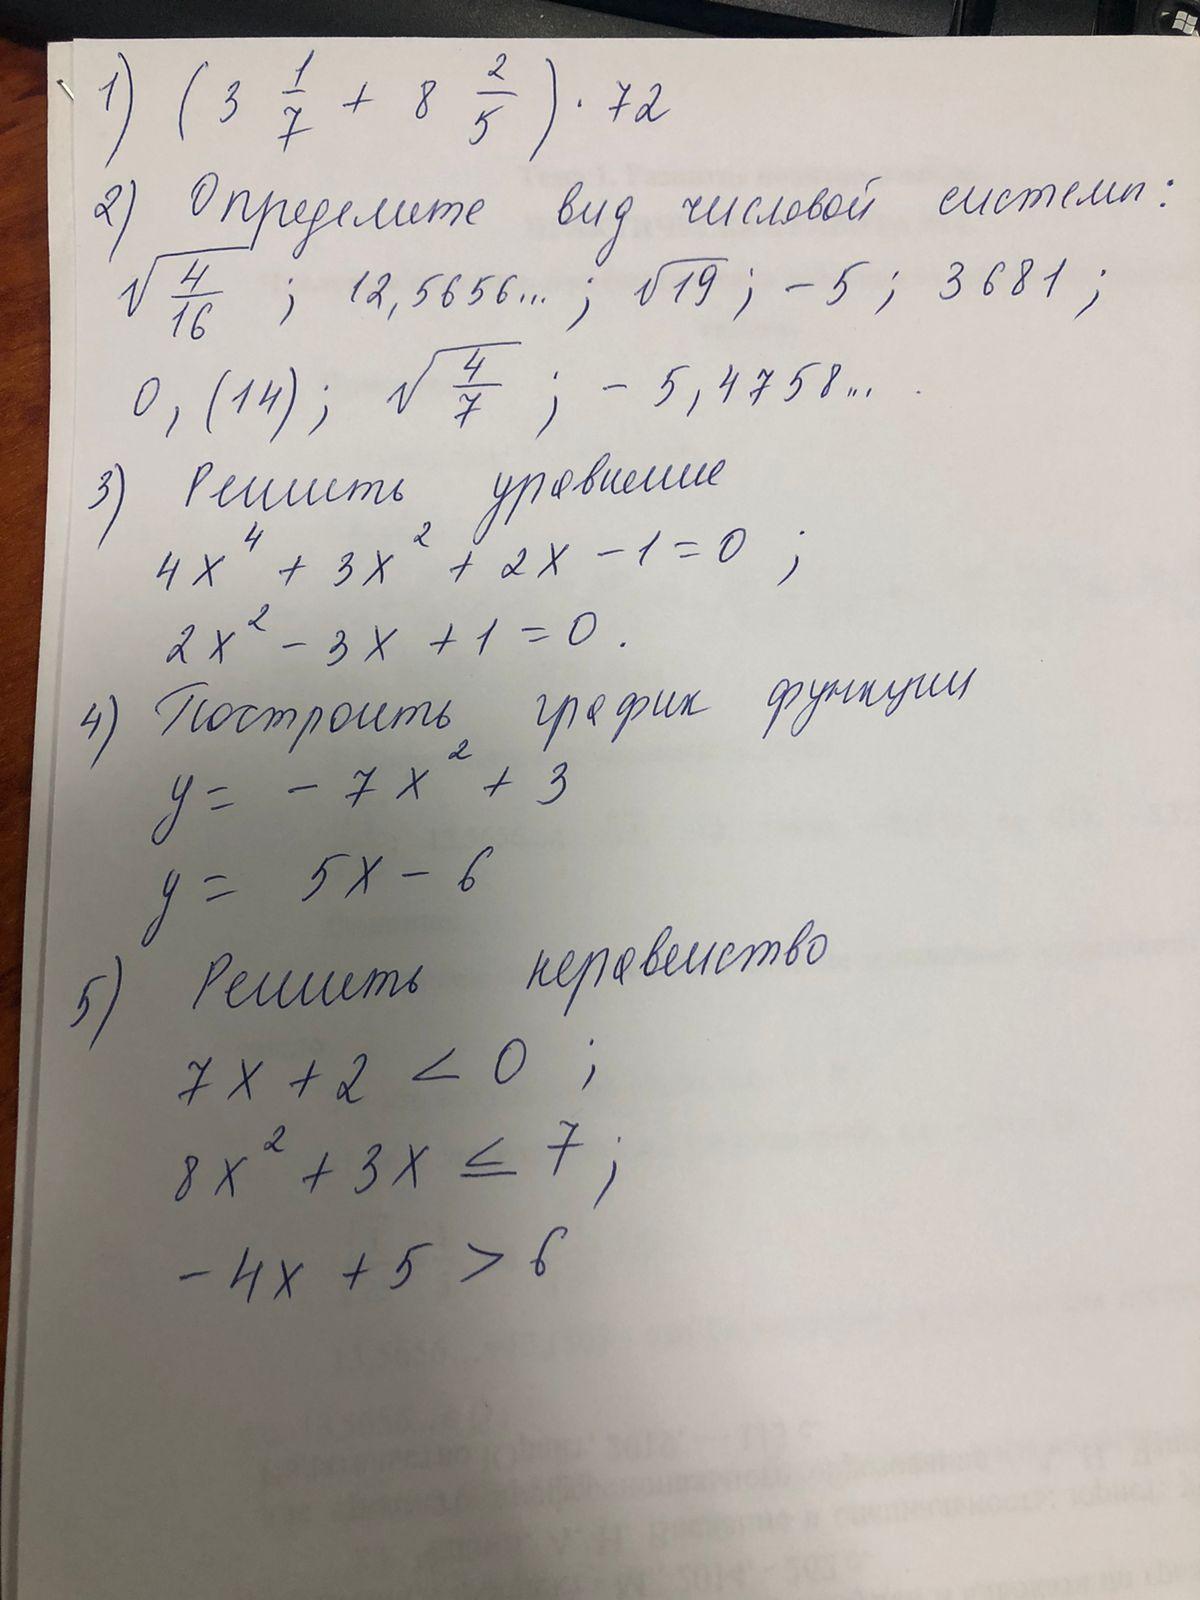 1) (3 1/7 + 8 2/5) · 72
2) Определите вид числовой системы:
√(4/16) ; 12,5656... ; √19 ; -5 ; 3681 ;
0,(14) ; √(4/7) ; -5,4758... .
3) Решить уравнение
4x⁴ + 3x² + 2x - 1 = 0 ;
2x² - 3x + 1 = 0 .
4) Построить график функции
y = - 7x² + 3
y = 5x - 6
5) Решить неравенство
7x + 2 < 0 ;
8x² + 3x ≤ 7 ;
-4x + 5 > 6